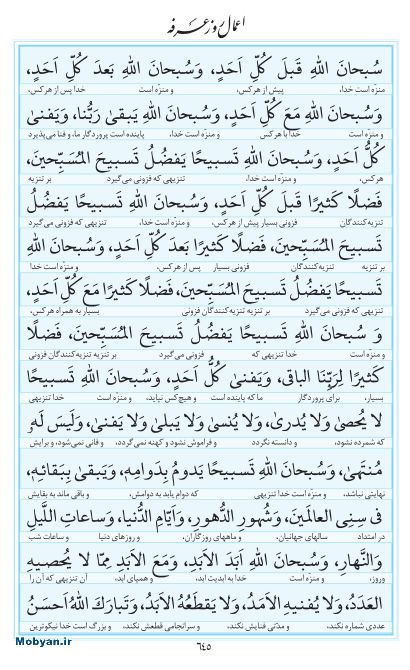 اعمال روز عرفه
سُبحانَ اللهِ قَبلَ کُلِّ اَحَدٍ، وَسُبحانَ اللهِ بَعدَ کُلِّ اَحَدٍ،
منزّه است خدا، پیش از هر کس، و منزّه است خدا پس از هر کس،
وَسُبحانَ اللهِ مَعَ کُلِّ اَحَدٍ، وَسُبحانَ اللهِ یَبقیٰ رَبُّنا، وَیَفنیٰ
و منزّه است خدا با هر کس و منزّه است خدا، پاینده است پروردگار ما، و فنا می‌پذیرد
کُلُّ اَحَدٍ، وَسُبحانَ اللهِ تَسبیحًا یَفضُلُ تَسبیحَ المُسَبِّحینَ،
هر کس، و منزّه است خدا، تنزیهی که فزونی می‌گیرد بر تنزیه
فَضلًا کَثیرًا قَبلَ کُلِّ اَحَدٍ، وَسُبحانَ اللهِ تَسبیحًا یَفضُلُ
تنزیه‌کنندگان فزونی بسیار پیش از هر کس، و منزّه است خدا، تنزیهی که فزونی می‌گیرد
تَسبیحَ المُسَبِّحینَ، فَضلًا کَثیرًا بَعدَ کُلِّ اَحَدٍ، وَسُبحانَ اللهِ
بر تنزیه تنزیه‌کنندگان فزونی بسیار پس از هر کس، و منزّه است خدا
تَسبیحًا یَفضُلُ تَسبیحَ المُسَبِّحینَ، فَضلًا کَثیرًا مَعَ کُلِّ اَحَدٍ،
تنزیهی که فزونی می‌گیرد بر تنزیه تنزیه‌کنندگان فزونی بسیار به همراه هر کس،
وَ سُبحانَ اللهِ تَسبیحًا یَفضُلُ تَسبیحَ المُسَبِّحینَ، فَضلًا
و منزّه است خدا تنزیهی که فزونی می‌گیرد بر تنزیه تنزیه‌کنندگان فزونی
کَثیرًا لِرَبِّنَا الباقی، وَیَفنیٰ کُلُّ اَحَدٍ، وَسُبحانَ اللهِ تَسبیحًا
بسیار، برای پروردگار ما که پاینده است و هیچ‌کس نپاید، و منزّه است خدا تنزیهی
لا یُحصیٰ وَلا یُدریٰ، وَلا یُنسیٰ وَلا یَبلیٰ وَلا یَفنیٰ، وَلَیسَ لَهُ
که شمرده نشود، و دانسته نگردد و فراموش نشود و کهنه نمی‌گردد، و فانی نمی‌شود، و برایش
مُنتَهیٰ، وَسُبحانَ اللهِ تَسبیحًا یَدومُ بِدَوامِهِ، وَیَبقیٰ بِبَقائِهِ،
نهایتی نباشد، و منزّه است خدا تنزیهی که دوام یابد به دوامش، و باقی ماند به بقایش
فی سِنِی العالَمینَ، وَشُهورِ الدُّهورِ، وَاَیّامِ الدُّنیا، وَساعاتِ اللَّیلِ
در امتداد سالهای جهانیان، و ماههای روزگاران، و روزهای دنیا و ساعات شب
وَالنَّهارِ، وَسُبحانَ اللهِ اَبَدَ الاَبَدِ، وَمَعَ الاَبَدِ مِمّا لا یُحصیهِ
وروز، و منزّه است خدا به ابدیت ابد، و همپای ابد، آن تنزیهی که آن را
العَدَدُ، وَلا یُفنیهِ الاَمَدُ، وَلا یَقطَعُهُ الاَبَدُ، وَتَبارَكَ اللهُ اَحسَنُ
عددی شماره نکند، و مدّتی فنایش نکند، و سرانجامی قطعش نکند، و بزرگ است خدا نیکوترین
٦٤٥
Mobyan.ir